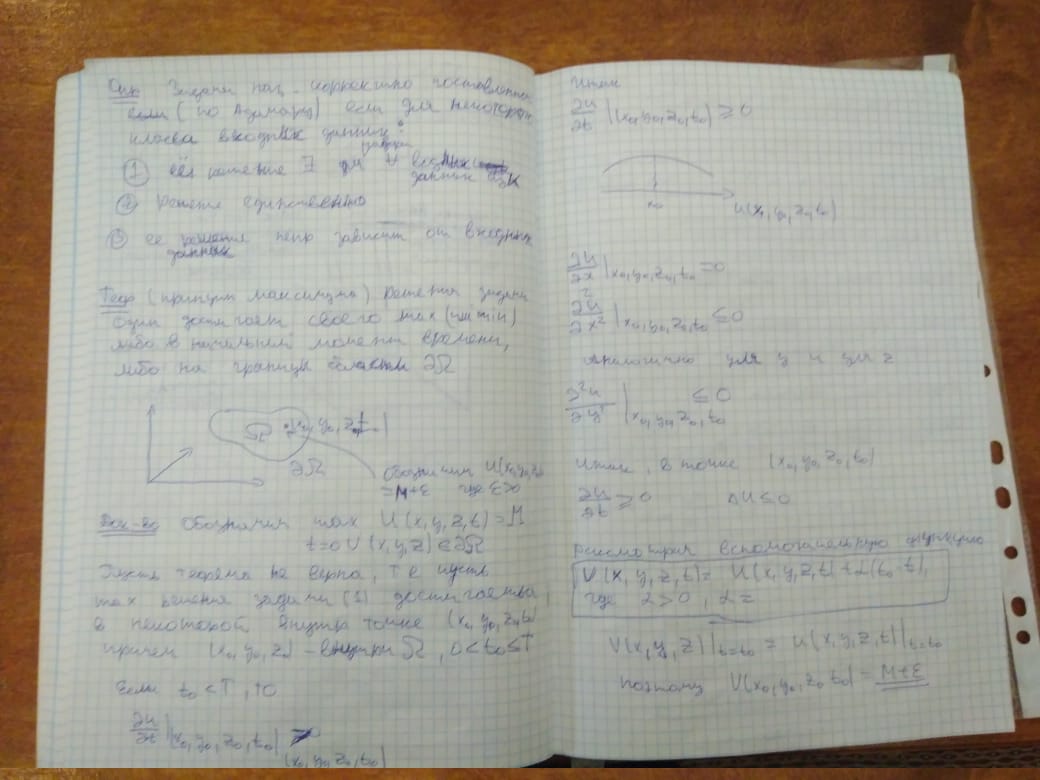 Опр Задачи наз. корректно поставленной
если (по Адамару) если для некоторого
класса входных данных:
① её решение ∃ для ∀ входных
данных
② решение единственно
③ ее решение непр зависит от входных
данных
Теор (принцип максимума) Решения задачи
один достигает своего max (или min)
либо в начальный момент времени,
либо на границы области ∂Ω
Ω (x₀, y₀, z₀, t₀)
∂Ω
Обозначим U(x₀,y₀,z₀
= M+ε где ε>0
Док-во Обозначим max U(x,y,z,t) = M
t=0 U (x,y,z) ∈ ∂Ω
Пусть теорема не верна, т е пусть
max решения задачи (1) достигается
в некоторой внутр точке (x₀, y₀, z₀, t₀)
причем (x₀, y₀, z₀) - внутри Ω, 0<t₀≤T
Если t₀<T, то
∂u/∂t |(x₀, y₀, z₀, t₀)
(x₀, y₀, z₀, t₀)
Итак
∂u/∂t |(x₀,y₀,z₀,t₀) ≥ 0
x₀
U(x, y₀, z₀, t₀)
∂u/∂x |x₀,y₀,z₀,t₀ = 0
∂²u/∂x² |x₀,y₀,z₀,t₀ ≤ 0
Аналогично для y и для z
∂²u/∂y² |x₀,y₀,z₀,t₀ ≤ 0
Итак, в точке (x₀, y₀, z₀, t₀)
∂u/∂t ≥ 0 ΔU ≤ 0
рассмотрим вспомогательную функцию
V(x, y, z, t) = U(x, y, z, t) + α(t₀-t),
где α>0, α=
V(x, y, z)|t=t₀ = U(x, y, z, t)|t=t₀
поэтому V(x₀, y₀, z₀ t₀) = M+ε